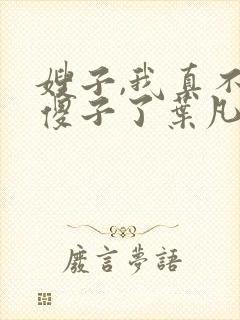 嫂子,我真不
傻子了葉凡
廢言夢語